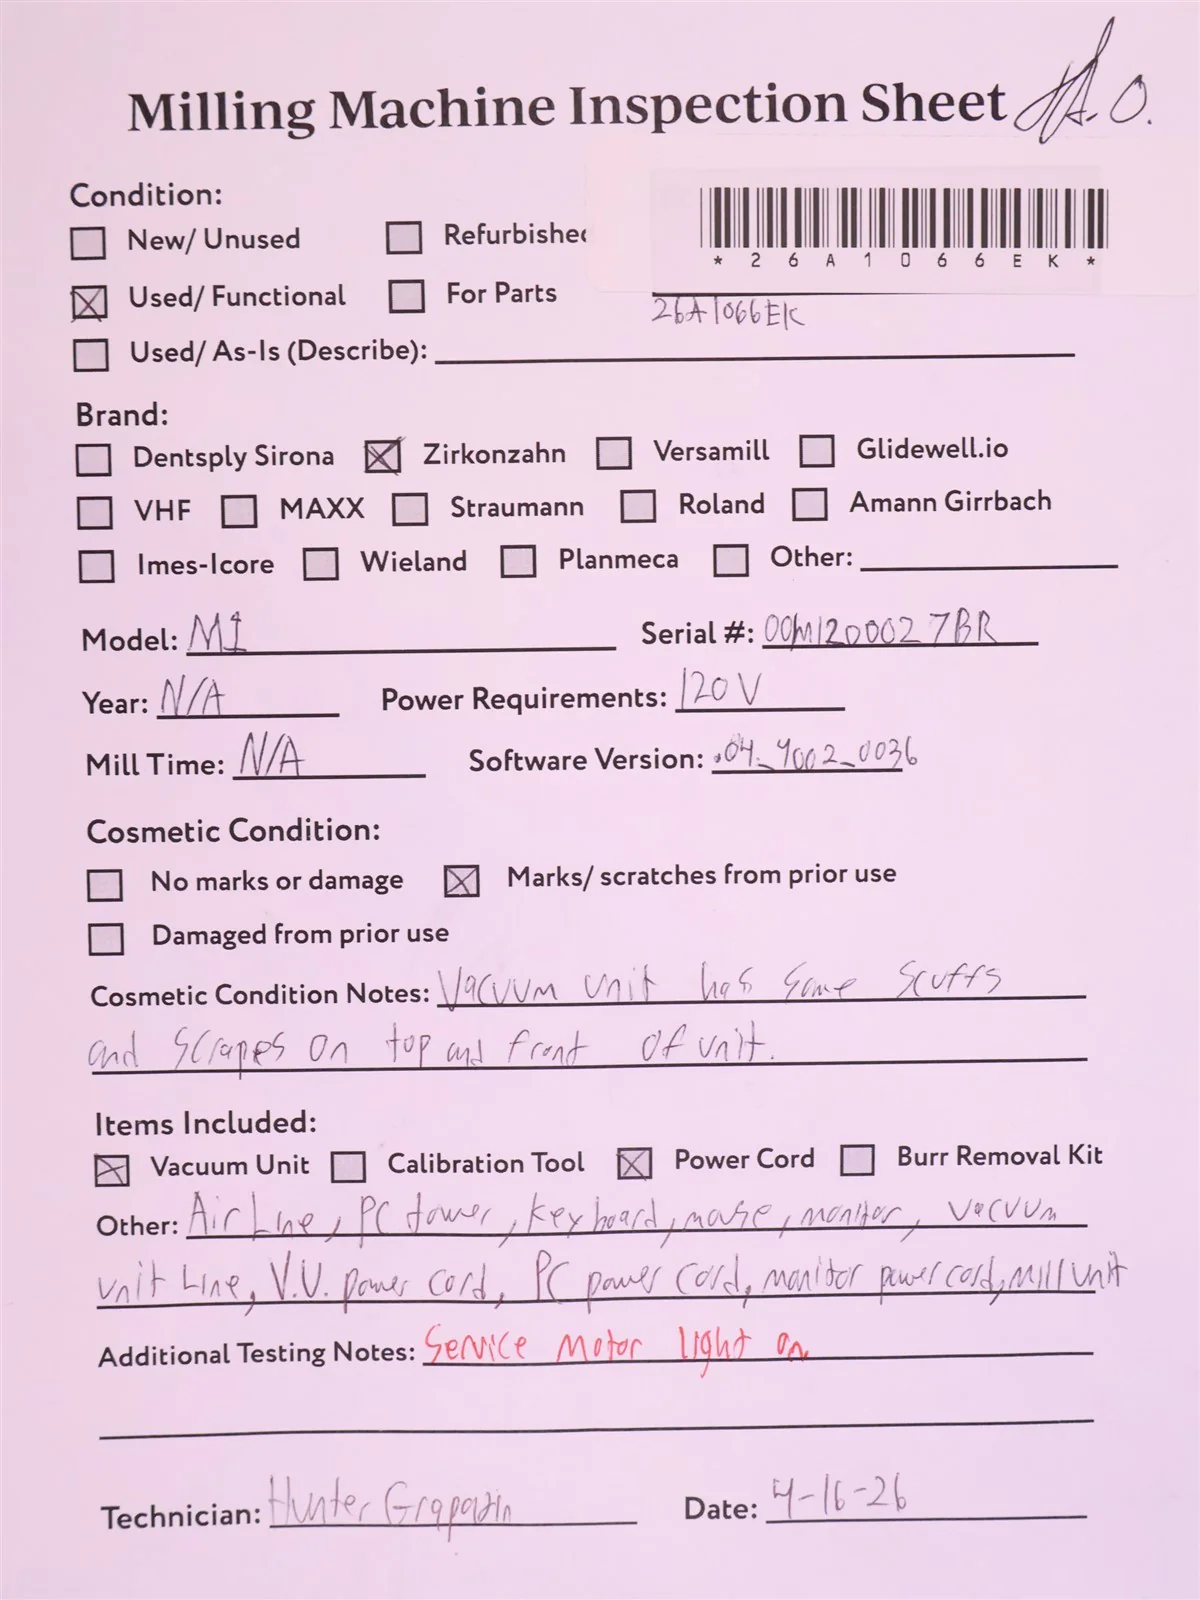 Milling Machine Inspection Sheet A.O.
Condition:
New/ Unused Refurbished
* 2 6 A 1 0 6 6 E K *
Used/ Functional For Parts
26A1066EK
Used/ As-Is (Describe):
Brand:
Dentsply Sirona Zirkonzahn Versamill Glidewell.io
VHF MAXX Straumann Roland Amann Girrbach
Imes-Icore Wieland Planmeca Other:
Model: M1 Serial #: 00M1200027BR
Year: N/A Power Requirements: 120V
Mill Time: N/A Software Version: .04_9002_0036
Cosmetic Condition:
No marks or damage Marks/ scratches from prior use
Damaged from prior use
Cosmetic Condition Notes: Vacuum unit has some scuffs
and scrapes on top and front of unit.
Items Included:
Vacuum Unit Calibration Tool Power Cord Burr Removal Kit
Other: Air Line, PC tower, keyboard, mouse, monitor, vacuum
unit Line, V.U. power cord, PC power cord, monitor power cord, mill unit
Additional Testing Notes: Service motor light on
Technician: Hunter Date: 4-16-26